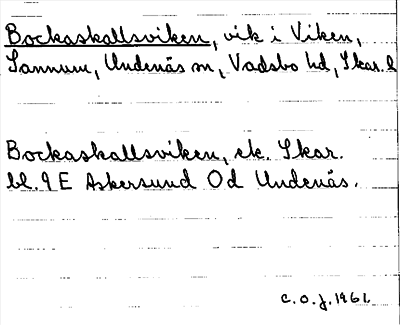 Bockaskallsviken, vik i Viken,
Sannum, Undenäs sn, Vadsbo hd, Skar. l
Bockaskallsviken, ek. Skar.
bl. 9 E Askersund Od Undenäs.
C.O.J. 1961